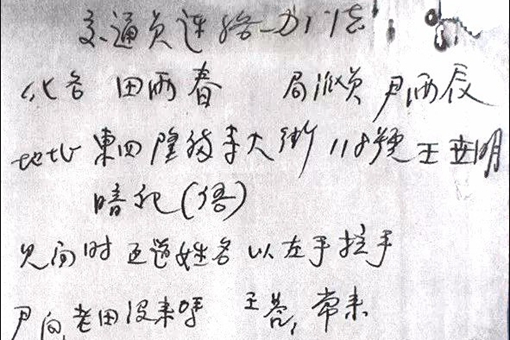 交通员连络办法
化名 田雨春 局派员 尹雨辰
地址 東四隆福寺大街118號王世明
暗记(语)
见面时互道姓名以左手拉手
尹问 老田没来吗 王答,常来